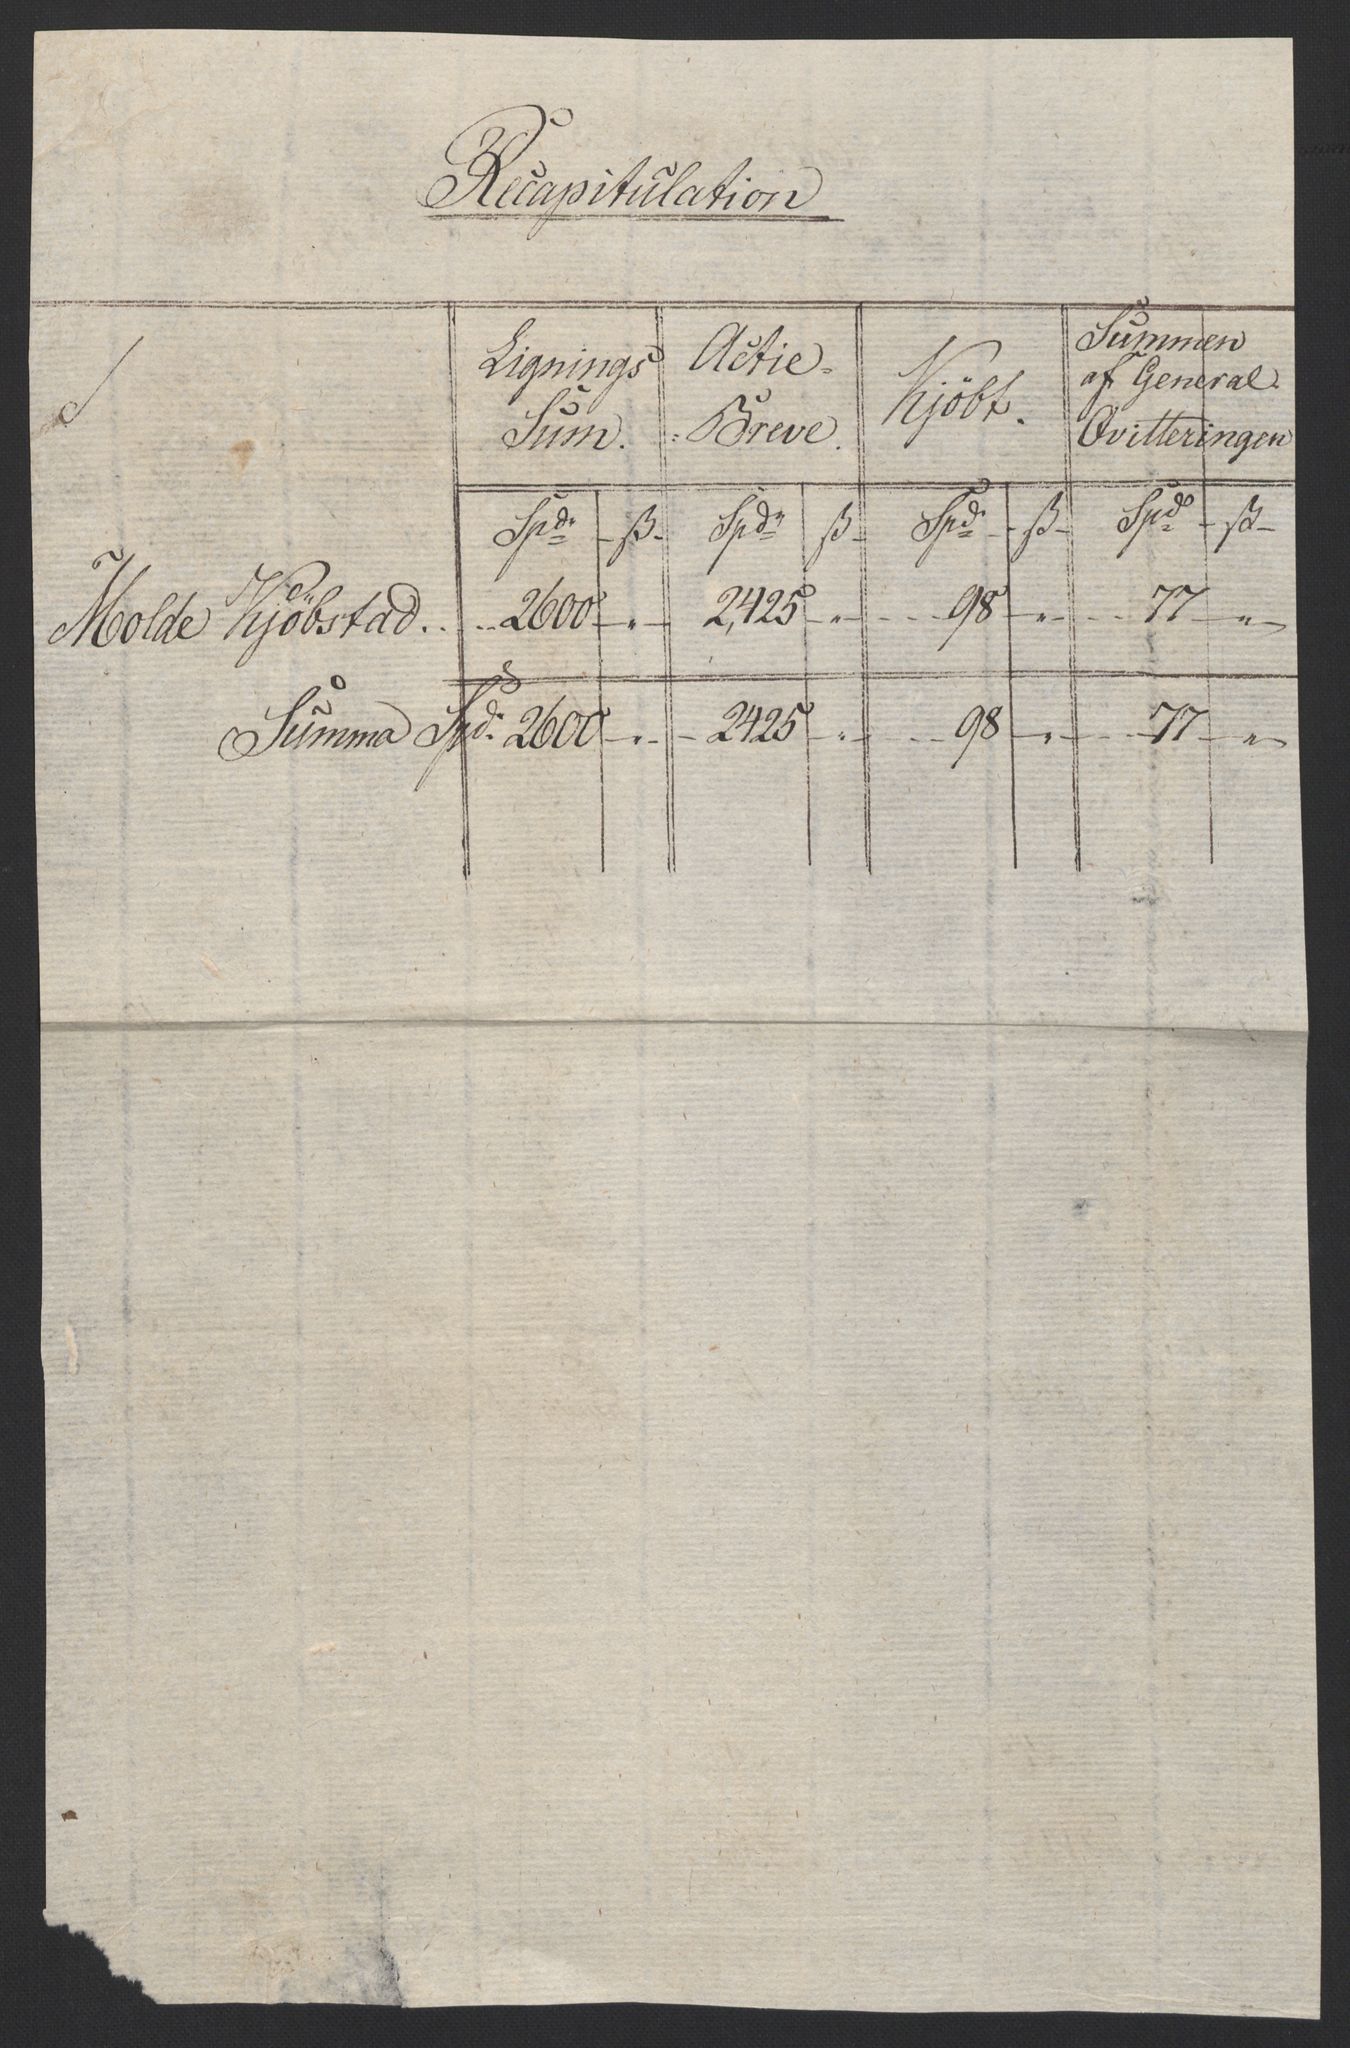 Recapitulation
Lignings Sum. Actie- Breve. Kjöbt. Summen af General Qvitteringen
Spdr ß Spdr ß Spdr ß Spdr ß
Molde Kjöbstad. 2600 " 2,425 " 98 " 77 "
Summa Spdr 2600 " 2425 " 98 " 77 "